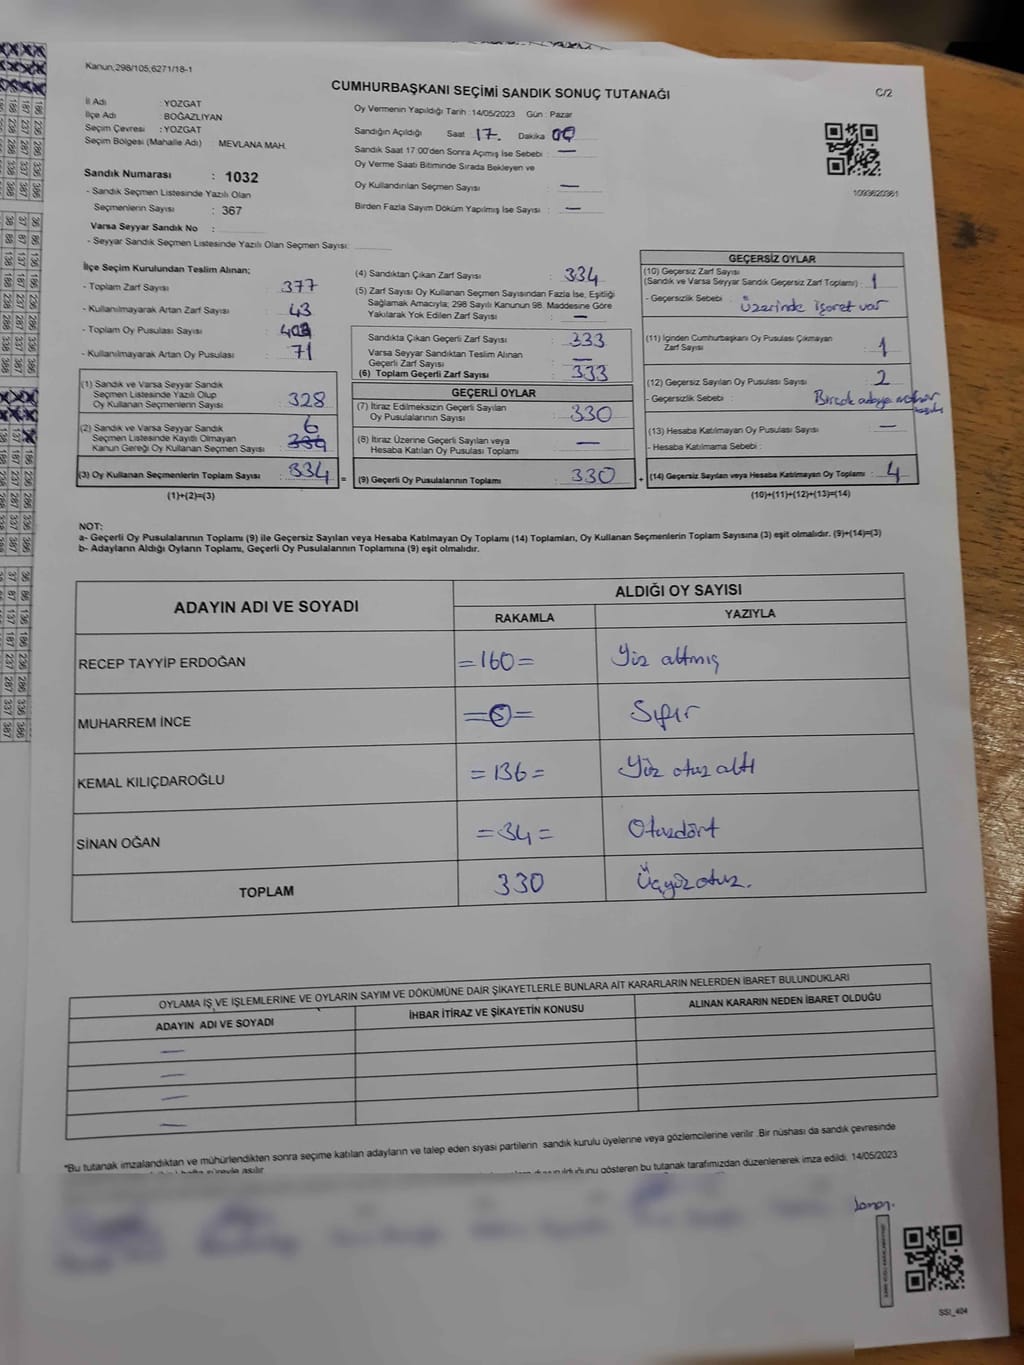 Kanun,298/105,6271/18-1
CUMHURBAŞKANI SEÇİMİ SANDIK SONUÇ TUTANAĞI
C/2
İl Adı : YOZGAT
İlçe Adı : BOĞAZLIYAN
Seçim Çevresi : YOZGAT
Seçim Bölgesi (Mahalle Adı) : MEVLANA MAH.
Sandık Numarası : 1032
- Sandık Seçmen Listesinde Yazılı Olan
Seçmenlerin Sayısı : 367
Varsa Seyyar Sandık No :
- Seyyar Sandık Seçmen Listesinde Yazılı Olan Seçmen Sayısı:
Oy Vermenin Yapıldığı Tarih : 14/05/2023 Gün : Pazar
Sandığın Açıldığı Saat 17. Dakika 00
Sandık Saat 17:00'den Sonra Açımış İse Sebebi : —
Oy Verme Saati Bitiminde Sırada Bekleyen ve
Oy Kullandırılan Seçmen Sayısı : —
Birden Fazla Sayım Döküm Yapılmış İse Sayısı : —
1093620361
İlçe Seçim Kurulundan Teslim Alınan;
- Toplam Zarf Sayısı : 377
- Kullanılmayarak Artan Zarf Sayısı : 43
- Toplam Oy Pusulası Sayısı :
- Kullanılmayarak Artan Oy Pusulası : 71
(1) Sandık ve Varsa Seyyar Sandık
Seçmen Listesinde Yazılı Olup
Oy Kullanan Seçmenlerin Sayısı : 328
(2) Sandık ve Varsa Seyyar Sandık
Seçmen Listesinde Kayıtlı Olmayan
Kanun Gereği Oy Kullanan Seçmen Sayısı : 6
(3) Oy Kullanan Seçmenlerin Toplam Sayısı : 334
(1)+(2)=(3)
(4) Sandıktan Çıkan Zarf Sayısı : 334
(5) Zarf Sayısı Oy Kullanan Seçmen Sayısından Fazla İse, Eşitliği
Sağlamak Amacıyla; 298 Sayılı Kanunun 98. Maddesine Göre
Yakılarak Yok Edilen Zarf Sayısı : —
Sandıkta Çıkan Geçerli Zarf Sayısı : 333
Varsa Seyyar Sandıktan Teslim Alınan
Geçerli Zarf Sayısı : —
(6) Toplam Geçerli Zarf Sayısı : 333
GEÇERLİ OYLAR
(7) İtiraz Edilmeksizin Geçerli Sayılan
Oy Pusulalarının Sayısı : 330
(8) İtiraz Üzerine Geçerli Sayılan veya
Hesaba Katılan Oy Pusulası Toplamı : —
= (9) Geçerli Oy Pusulalarının Toplamı : 330 +
GEÇERSİZ OYLAR
(10) Geçersiz Zarf Sayısı
(Sandık ve Varsa Seyyar Sandık Geçersiz Zarf Toplamı) : 1
- Geçersizlik Sebebi : üzerinde işaret var
(11) İçinden Cumhurbaşkanı Oy Pusulası Çıkmayan
Zarf Sayısı : 1
(12) Geçersiz Sayılan Oy Pusulası Sayısı : 2
- Geçersizlik Sebebi Bircok adaya mühür
(13) Hesaba Katılmayan Oy Pusulası Sayısı : —
- Hesaba Katılmama Sebebi :
(14) Geçersiz Sayılan veya Hesaba Katılmayan Oy Toplamı : 4
(10)+(11)+(12)+(13)=(14)
NOT:
a- Geçerli Oy Pusulalarının Toplamı (9) ile Geçersiz Sayılan veya Hesaba Katılmayan Oy Toplamı (14) Toplamları, Oy Kullanan Seçmenlerin Toplam Sayısına (3) eşit olmalıdır. (9)+(14)=(3)
b- Adayların Aldığı Oyların Toplamı, Geçerli Oy Pusulalarının Toplamına (9) eşit olmalıdır.
ADAYIN ADI VE SOYADI
ALDIĞI OY SAYISI
RAKAMLA YAZIYLA
RECEP TAYYİP ERDOĞAN =160= Yüz altmış
MUHARREM İNCE Sıfır
KEMAL KILIÇDAROĞLU =136= Yüz otuz altı
SİNAN OĞAN =34= Otuzdört
TOPLAM 330 Üçyüzotuz.
OYLAMA İŞ VE İŞLEMLERİNE VE OYLARIN SAYIM VE DÖKÜMÜNE DAİR ŞİKAYETLERLE BUNLARA AİT KARARLARIN NELERDEN İBARET BULUNDUKLARI
ADAYIN ADI VE SOYADI İHBAR İTİRAZ VE ŞİKAYETİN KONUSU ALINAN KARARIN NEDEN İBARET OLDUĞU
—
—
—
—
*Bu tutanak imzalandıktan ve mühürlendikten sonra seçime katılan adayların ve talep eden siyasi partilerin sandık kurulu üyelerine veya gözlemcilerine verilir .Bir nüshası da sandık çevresinde
gösteren bu tutanak tarafımızdan düzenlenerek imza edildi. 14/05/2023
SSI_404